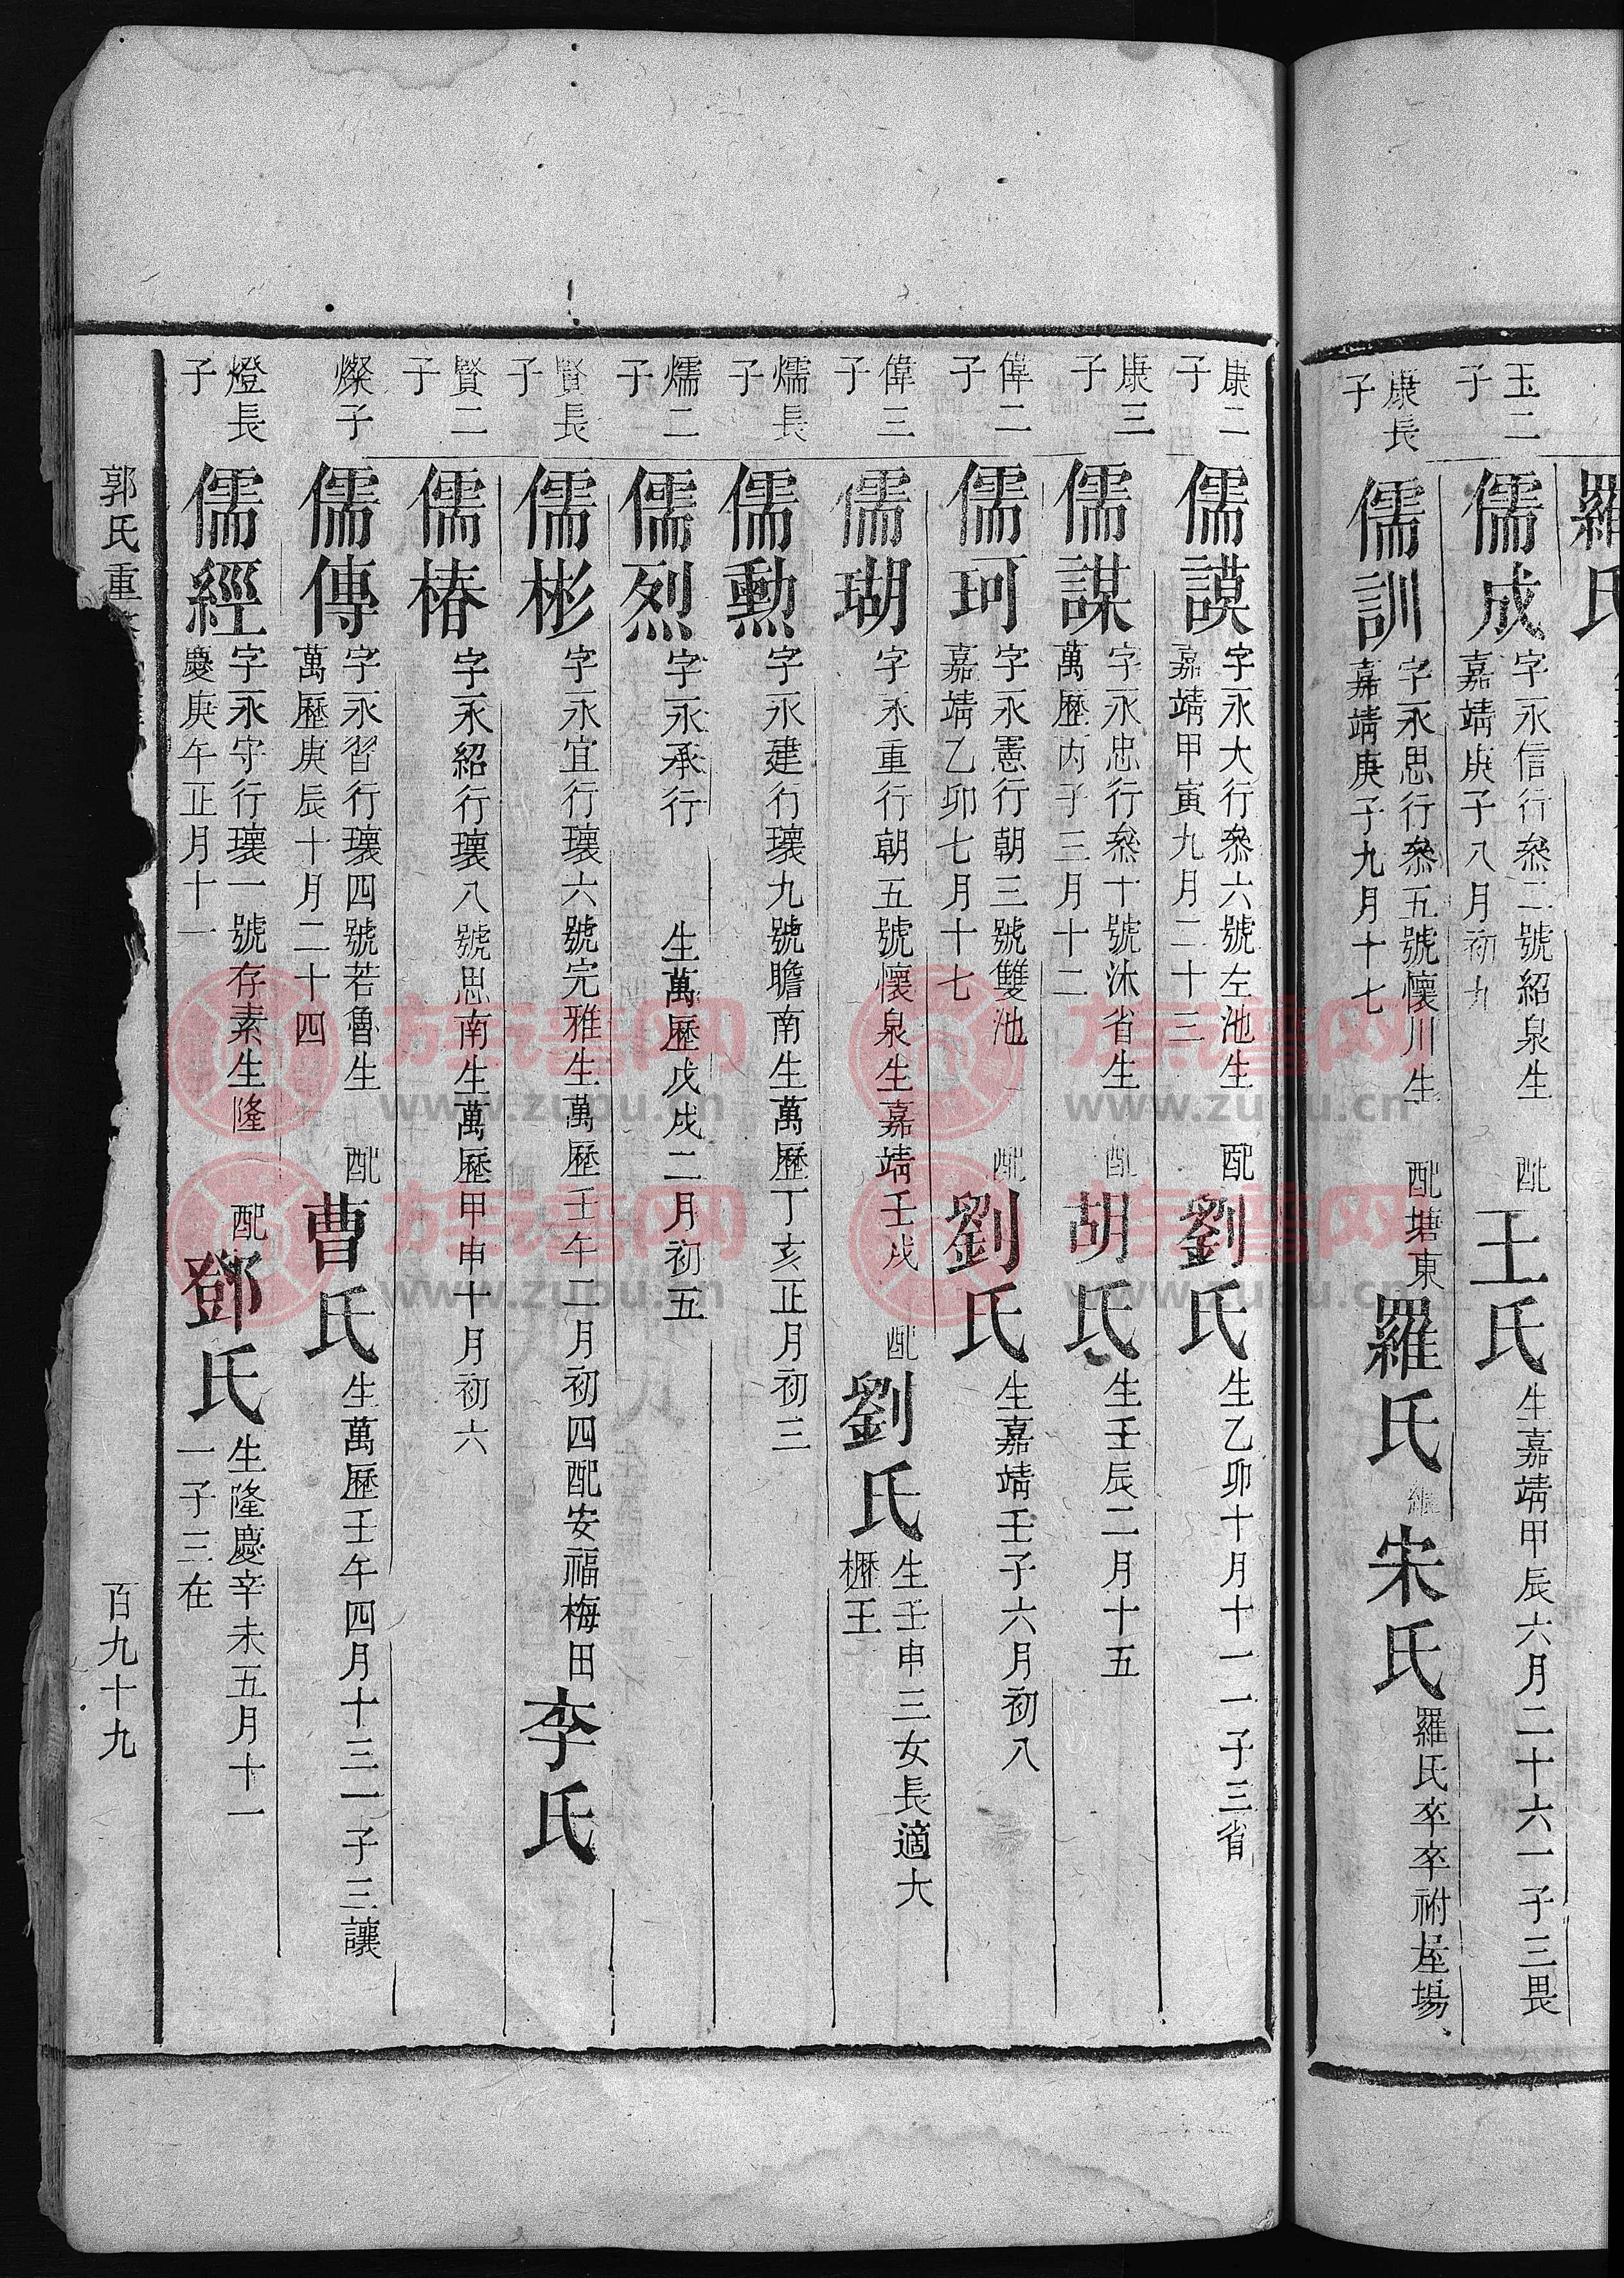 羅氏
玉二子
儒成
字永信行叅二號紹泉生
嘉靖庚子八月初九
配王氏
生嘉靖甲辰六月二十六一子三畏
康長子
儒訓
字永思行叅五號懷川生
嘉靖庚子九月十七
配塘東羅氏
繼宋氏
羅氏卒卒祔屋場
康二子
儒謨
字永大行叅六號左池生
嘉靖甲寅九月二十三
配劉氏
生乙卯十月十一一子三省
康三子
儒謀
字永忠行叅十號沐省生
萬歷丙子三月十二
配胡氏
生壬辰二月十五
偉二子
儒珂
字永憲行朝三號雙池
嘉靖乙卯七月十七
配劉氏
生嘉靖壬子六月初八
偉三子
儒瑚
字永重行朝五號懷泉生嘉靖壬戌
配劉氏
生壬申三女長適大
櫪王
燸長子
儒勲
字永建行瓌九號瞻南生萬歷丁亥正月初三
燸二子
儒烈
字永承行 生萬歷戊戌二月初五
賢長子
儒彬
字永宜行瓌六號完雅生萬歷壬午二月初四配安福梅田李氏
賢二子
儒椿
字永紹行瓌八號思南生萬歷甲申十月初六
燦子
儒傳
字永習行瓌四號若魯生
萬歷庚辰十月二十四
配曹氏
生萬歷壬午四月十三一子三讓
燈長子
儒經
字永守行瓌一號存素生隆
慶庚午正月十一
配鄧氏
生隆慶辛未五月十一
一子三在
郭氏重
百九十九
族譜网
www.zupu.cn
族譜网
www.zupu.cn
族譜网
www.zupu.cn
族譜网
www.zupu.cn